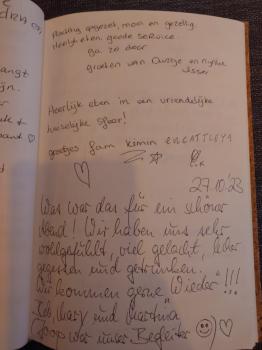 Prachtig opgezet, mooi en gezellig.
Heerlijk eten, goede service
ga zo door
groeten van en
Visser
Heerlijk eten in een vriendelijke
huiselijke sfeer!
groetjes fam
27.10.'23
Was war das für ein schöner
Abend! Wir haben uns sehr
wohlgefühlt, viel gelacht, lecker
gegessen und getrunken.
Wir kommen gerne "Wieder"!!!
Mary und Martina
Joop war unser Begleiter